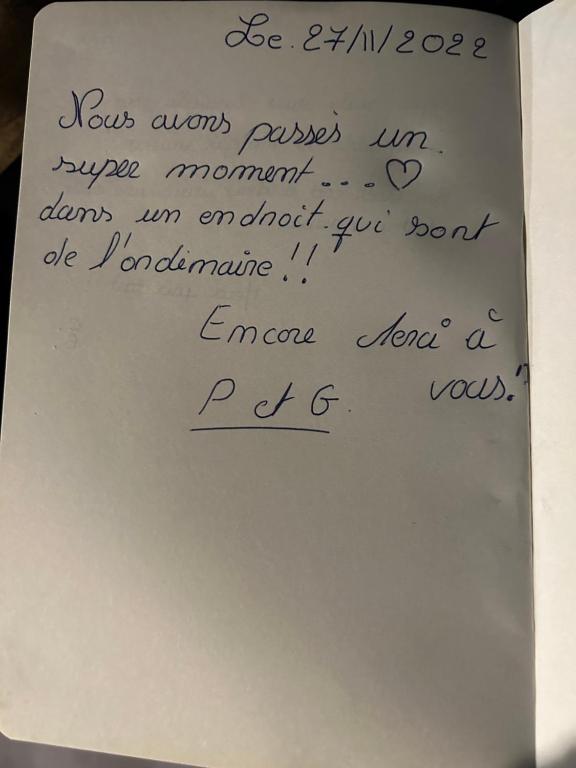 Le. 27/11/2022
Nous avons passés un
super moment...♡
dans un endroit qui sont
de l'ordinaire !!
Encore Merci à
vous!
P et G.